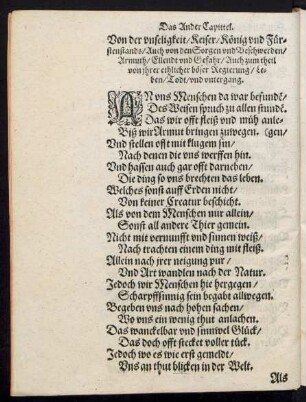 Das Ander Capittel.
Von der vnseligkeit/ Keiser/ König vnd Für-
stenstands/ Auch von den Sorgen vnd Beschwerden/
Armuth/ Ellendt vnd Gefahr/ Auch zum theil
von jhrer etlicher böser Regierung/ Le-
ben/ Todt/ vnd vntergang.
AN vns Menschen da war befundē/
Des Weisen spruch zu allen stundē.
Das wir offt fleiß vnd müh anle-
Biß wir Armut bringen zuwegen. (gen/
Vnd stellen offt mit klugem sin/
Nach denen die vns werffen hin.
Vnd hassen auch gar offt darneben/
Die ding so vns brechten das leben.
Welches sonst auff Erden nicht/
Von keiner Creatur beschicht.
Als von dem Menschen nur allein/
Sonst all andere Thier gemein.
Nicht mit vernunfft vnd sinnen weiß/
Nach trachten einem ding mit fleiß.
Allein nach jrer neigung pur/
Vnd Art wandlen nach der Natur.
Jedoch wir Menschen hie hergegen/
Scharpffsinnig sein begabt allwegen.
Begeben vns nach hohen sachen/
Wo vns ein wenig thut anlachen.
Das wanckelbar vnd sinnwel Glück/
Das doch offt stecket voller tück.
Jedoch wo es wie erst gemeldt/
Vns an thut blicken in der Welt.
Als